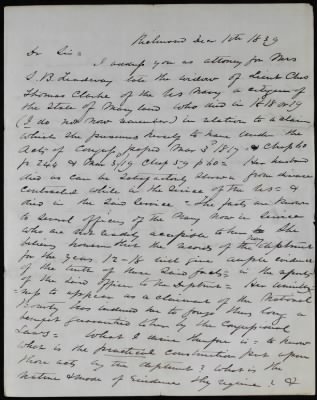 Richmond Decr 10th 1839
Dr Sir =
I address you as attorney for Mrs
S. B. Lindsay late the widow of Lieut Chas
Thomas Clarke of the US Navy a citizen of
the State of Maryland who died in 1818 or 19
(I do not now remember) in relation to a claim
which she presumes herself to have under the
Acts of Congress, passed Mar 3 1817 Chap 60
p. 244 & Mar 3/19 Chap 59 p 602 Her husband
died as can be satisfactorily shown from disease
contracted while in the Service of the US = &
died in the said Service = The facts are known
to several officers of the Navy now in Service
who are not readily accessible to her = She
believes however that the records of the Navy Deptment
for the Years 12-18 will give ample evidence
of the truth of these said facts = in the
of the said Officer to the Deptment = Her unwilling-
ness to appear as a claimant of the National
Bounty has induced me to forego thus long a
benefit guaranteed them by the Congressional
Laws = What I desire therefore is = to know
what is the practical construction put upon
those acts by the deptment? What is the
nature & mode of Evidence they require? &